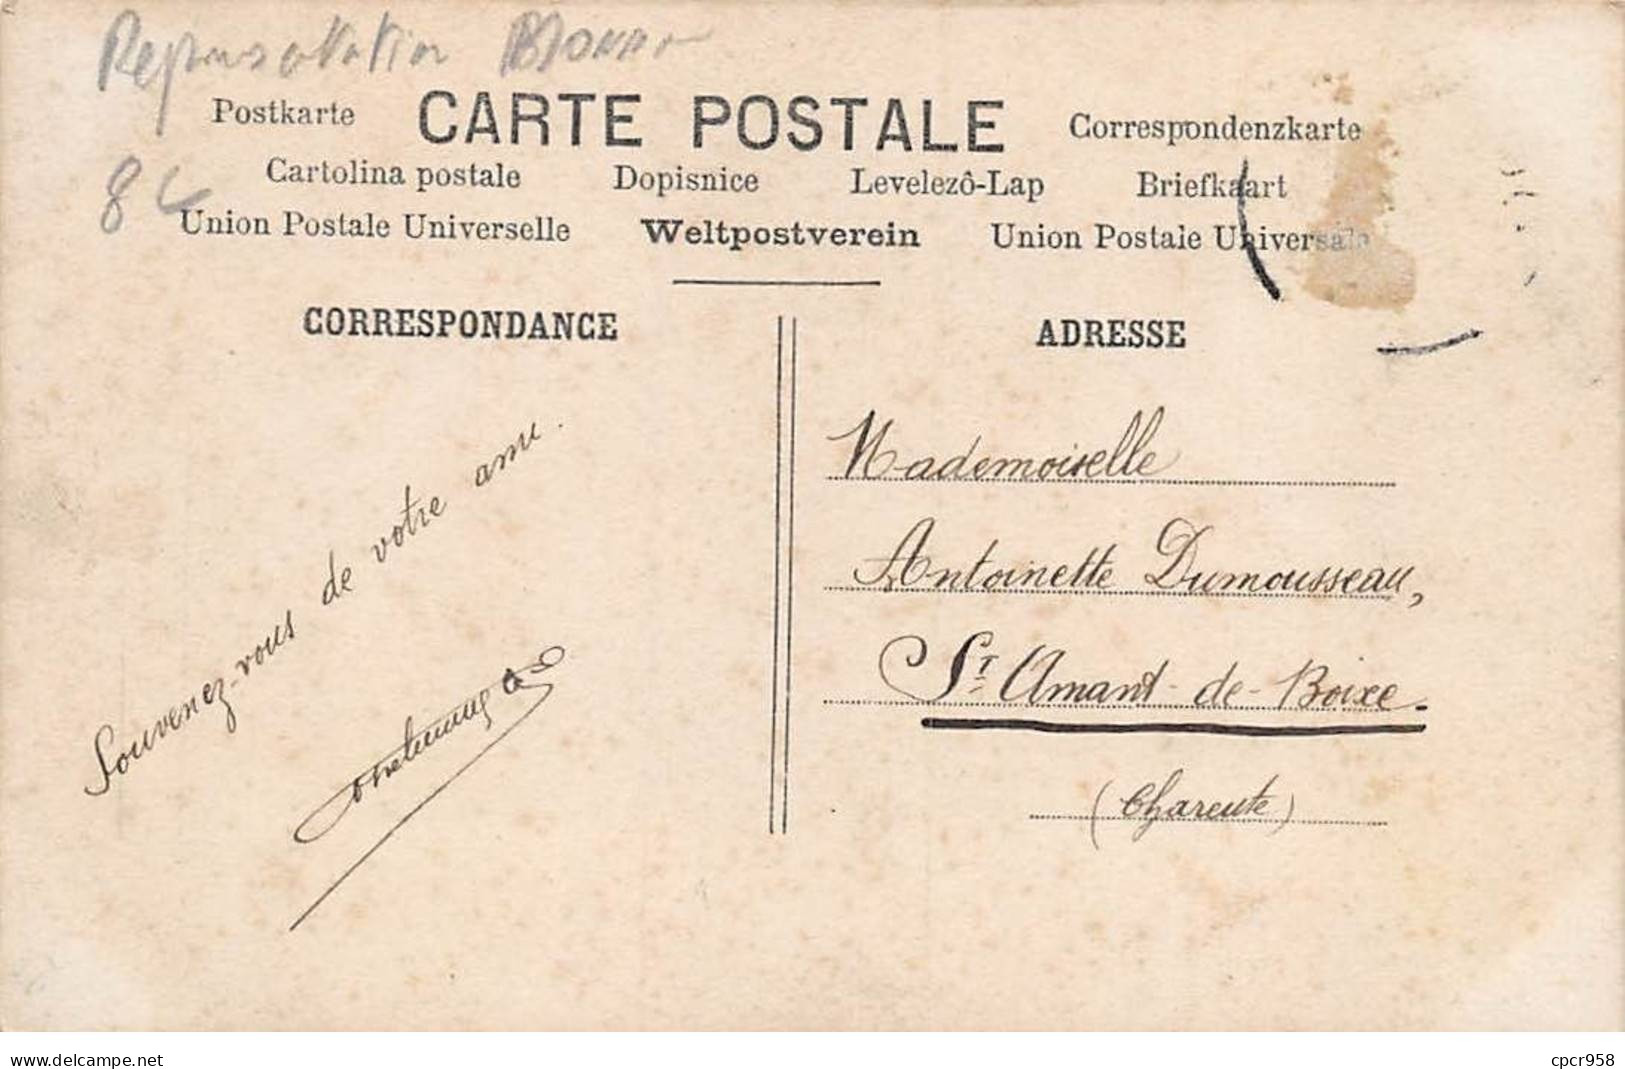 Postkarte CARTE POSTALE Correspondenzkarte
Cartolina postale Dopisnice Levelezô-Lap Briefkaart
Union Postale Universelle Weltpostverein Union Postale Universale
CORRESPONDANCE
Souvenez-vous de votre ami.
ADRESSE
Mademoiselle
Antoinette Dumousseau,
St Amant-de-Boixe.
(Charente)
www.delcampe.net
cpcr958